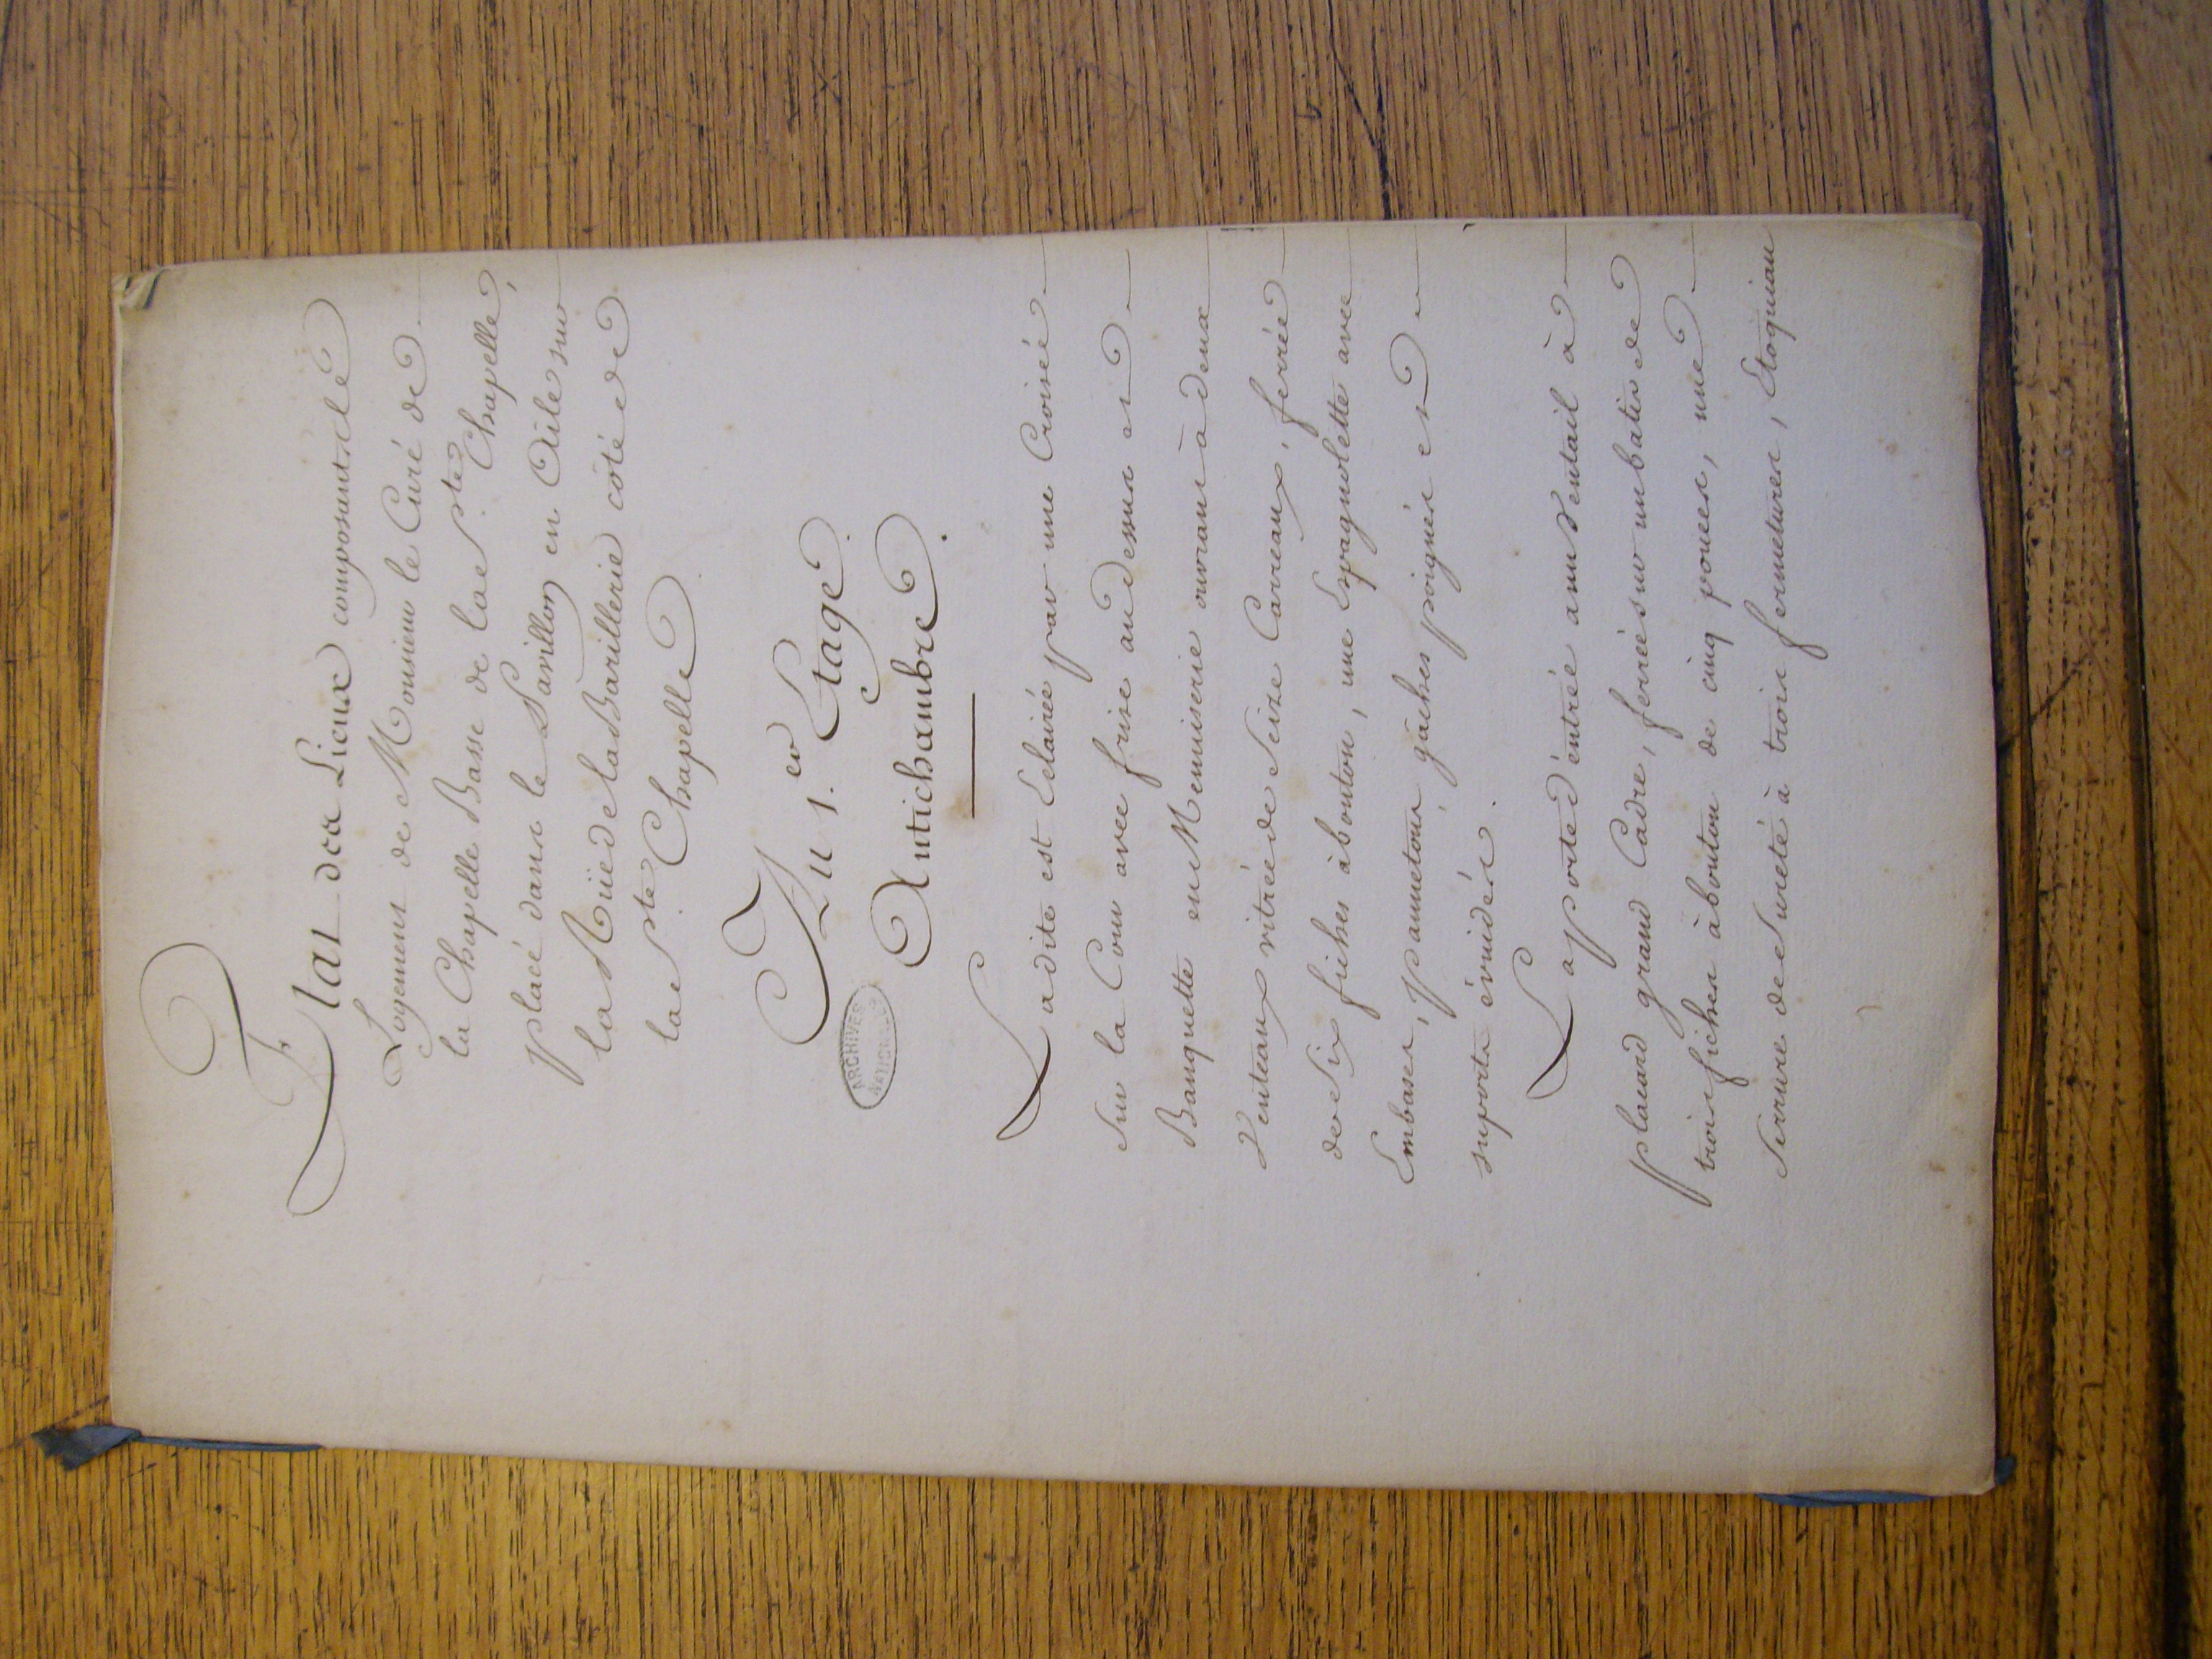 Etat des Lieux composant le
Logement de Monsieur le Curé de
la Chapelle Basse de la Ste Chapelle,
placé dans le Pavillon en Aile sur
la Rüe de la Barillerie côté de
la Ste Chapelle
Au 1.er Etage.
Antichambre.
ARCHIVES NATIONALES
Ladite est Eclairée par une Croisée
sur la Cour avec frise au dessus et
Banquette en Menuiserie ouvrant à deux
Venteaux vitrée de Seize Carreaux, ferrée
de Six fiches à bouton, une Espagnolette avec
Embases, pannetons gâches poignée et
suports évuidés.
La porte d'entrée a un Ventail à
placard grand Cadre, ferrée sur un batis de
trois fiches à bouton de cinq pouces, une
Serrure de Sureté à trois fermetures, Etoquiau